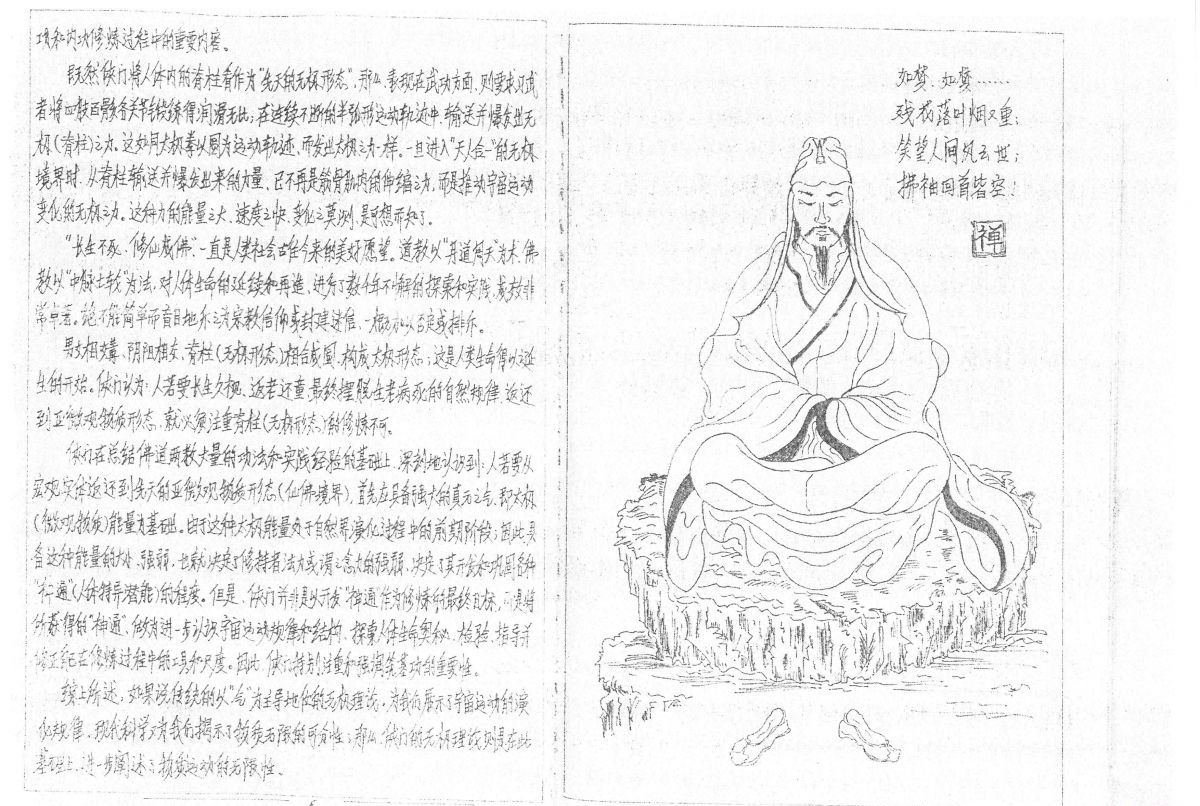 功和内功修炼过程中的重要内容。
既然侠门将人体内的脊柱看作为“先天的无极形态”，那么，表现在武功方面，则要求习武
者将四肢百骸各关节锻练得润滑无比，在连续不断的半弧形运动轨迹中，输送并爆发出无
极（脊柱）之力。这如同太极拳以圆为运动轨迹，而发出太极之力一样。一旦进入“天人合一”的无极
境界时，从脊柱输送并爆发出来的力量，已不再是筋骨肌肉的伸缩之力，而是推动宇宙运动
变化的无极之力。这种力的能量之大，速度之快，变化之莫测，是可想而知了。
“长生不死，修仙成佛”，一直是人类社会古往今来的美好愿望。道教以“丹道周天”为术，佛
教以“中脉七轮”为法，对人体生命的延续和再造，进行了数千年不懈的探索和实践，成效非
常卓著。绝不能简单而盲目地斥之为宗教信仰或封建迷信，一概加以否定或排斥。
男女相媾，阴阳相交，脊柱（无极形态）相合成圆，构成太极形态；这是人类生命得以诞
生的开始。侠门认为：人若要长生久视，返老还童，最终摆脱生老病死的自然规律，返还
到亚微观物质形态，就必须注重脊柱（无极形态）的修炼不可。
侠门在总结佛道两教大量的功法和实践经验的基础上，深刻地认识到：人若要从
宏观实体返还到先天的亚微观物质形态（仙佛境界），首先应具备强大的真元之气，即太极
（微观物质）能量为基础。由于这种太极能量处于自然界演化过程中的前期阶段，因此具
备这种能量的大小、强弱，也就决定了修持者法力或谓之念力的强弱，决定了其开发和巩固各种
“神通”（人体特异潜能）的程度。但是，侠门并非是以开发“神通”作为修炼的最终目标，而是将
所获得的“神通”，做为进一步认识宇宙运动规律和结构，探索人体生命奥秘，检验、指导并
修正自己在修炼过程中的工具和尺度。因此，侠门特别注重和强调筑基功的重要性。
综上所述，如果说传统的以“气”为主导地位的无极理论，为我们展示了宇宙运动的演
化规律，现代科学又为我们揭示了物质无限的可分性；那么，侠门的无极理论则是在此
基础上，进一步阐述了物质运动的无限性。
6
如梦，如梦……
残花落叶烟又重；
笑望人间风云世；
拂袖回首皆空。
禅